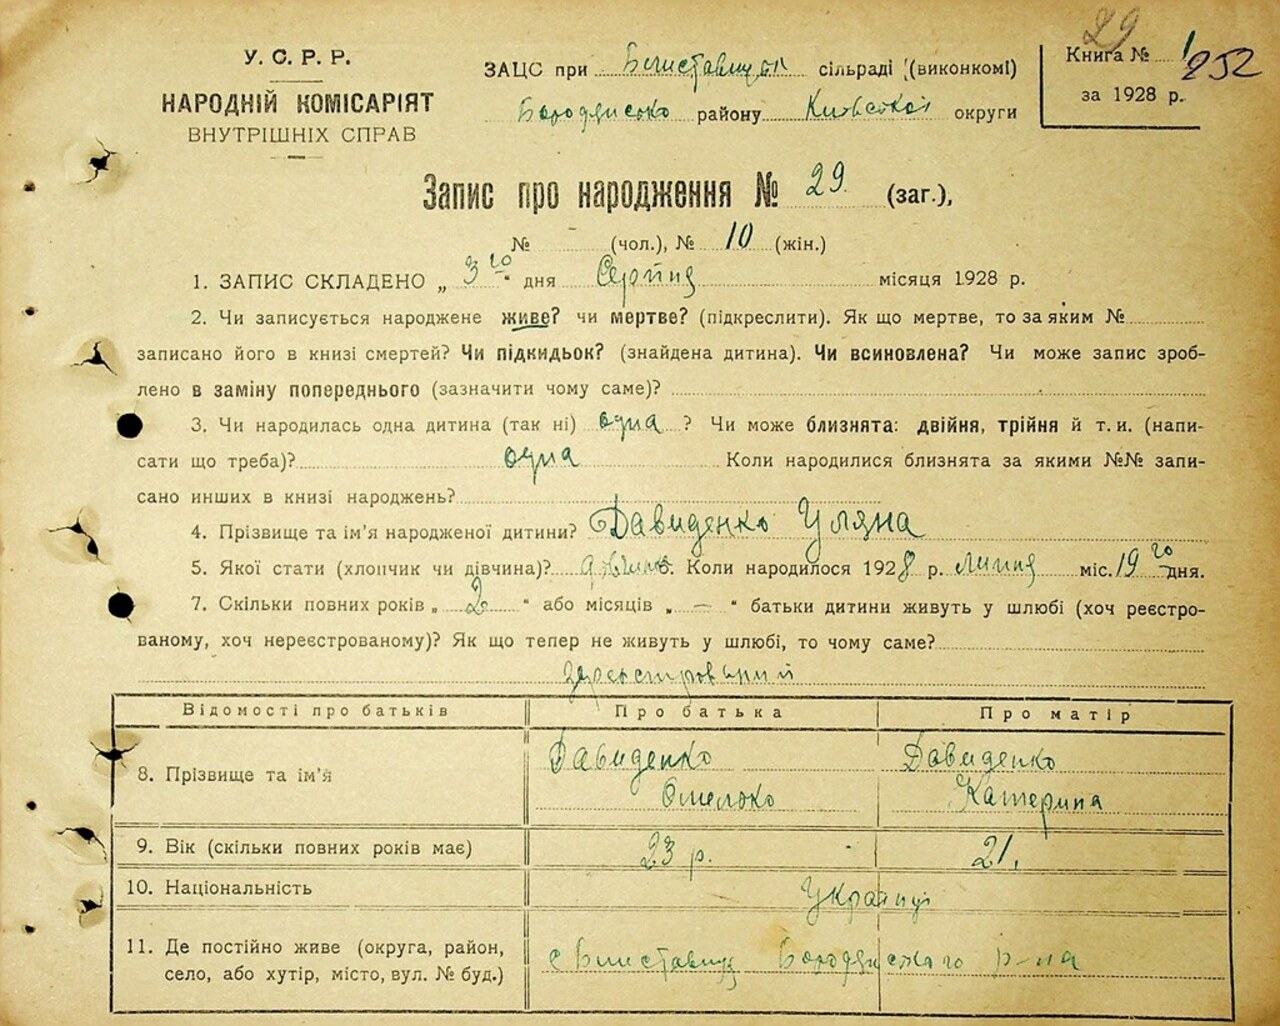 29
У. С. Р. Р.
НАРОДНІЙ КОМІСАРІЯТ
ВНУТРІШНІХ СПРАВ
ЗАЦС при сільраді (виконкомі)
району Київської округи
Книга № 1
252
за 1928 р.
Запис про народження № 29 (заг.),
№ (чол.), № 10 (жін.)
1. ЗАПИС СКЛАДЕНО „ 3го " дня Серпня місяця 1928 р.
2. Чи записується народжене живе? чи мертве? (підкреслити). Як що мертве, то за яким №
записано його в книзі смертей? Чи підкидьок? (знайдена дитина). Чи всиновлена? Чи може запис зроб-
лено в заміну попереднього (зазначити чому саме)?
3. Чи народилась одна дитина (так ні) одна ? Чи може близнята: двійня, трійня й т. и. (напи-
сати що треба)? одна Коли народилися близнята за якими №№ запи-
сано инших в книзі народжень?
4. Прізвище та ім'я народженої дитини? Давиденко Уляна
5. Якої стати (хлопчик чи дівчина)? 6. Коли народилося 1928 р. липня міс. 19го дня.
7. Скільки повних років „ 2 " або місяців „ — " батьки дитини живуть у шлюбі (хоч реєстро-
ваному, хоч нереєстрованому)? Як що тепер не живуть у шлюбі, то чому саме?
Відомості про батьків Про батька Про матір
8. Прізвище та ім'я Давиденко Давиденко
Омелько Катерина
9. Вік (скільки повних років має) 23 р. 21.
10. Національність Українці
11. Де постійно живе (округа, район,
село, або хутір, місто, вул. № буд.) с р-на